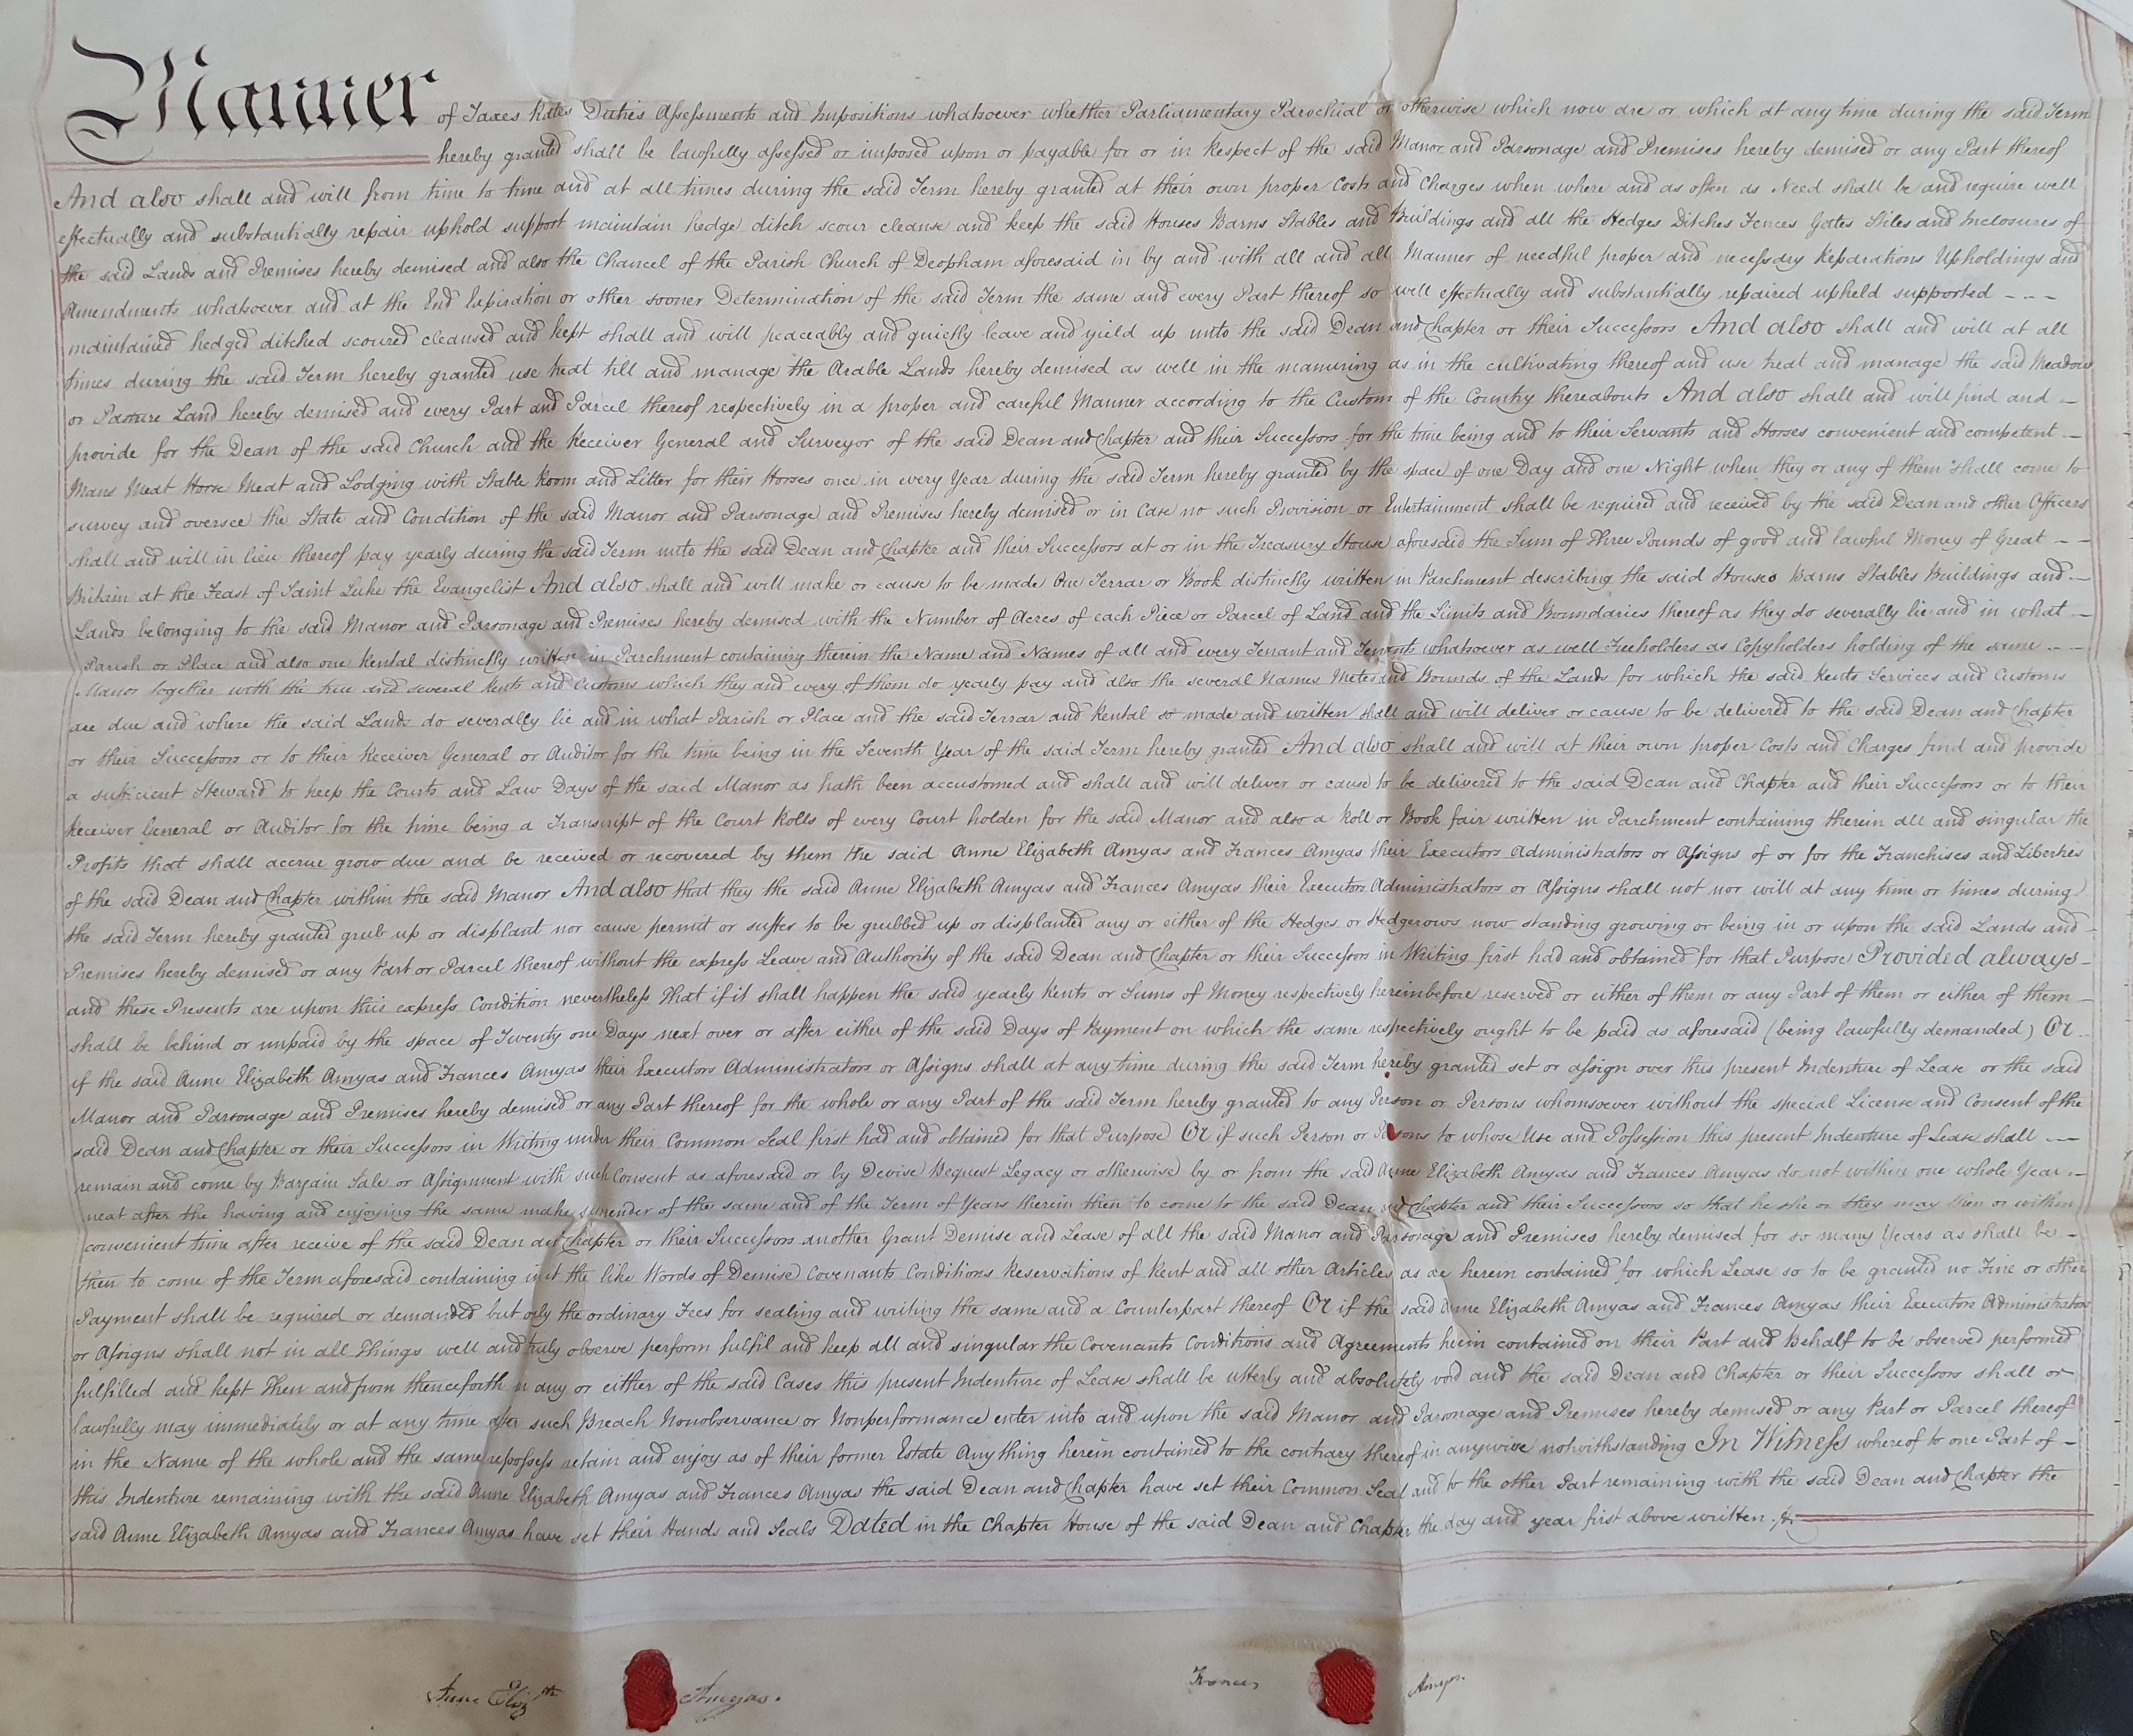 Manner of Taxes Rates Duties Assessments and Impositions whatsoever whether Parliamentary Parochial or otherwise which now are or which at any time during the said Term
hereby granted shall be lawfully assessed or imposed upon or payable for or in Respect of the said Manor and Parsonage and Premises hereby demised or any Part thereof
And also shall and will from time to time and at all times during the said Term hereby granted at their own proper Costs and Charges when where and as often as Need shall be and require well
effectually and substantially repair uphold support maintain hedge ditch scour cleanse and keep the said Houses Barns Stables and Buildings and all the Hedges Ditches Fences Gates Stiles and Inclosures of
the said Lands and Premises hereby demised and also the Chancel of the Parish Church of Deopham aforesaid in by and with all and all Manner of needful proper and necessary Reparations Upholdings and
Amendments whatsoever and at the End Expiration or other sooner Determination of the said Term the same and every Part thereof so well effectually and substantially repaired upheld supported - - -
maintained hedged ditched scoured cleansed and kept shall and will peaceably and quietly leave and yield up unto the said Dean and Chapter or their Successors And also shall and will at all
times during the said Term hereby granted use treat till and manage the Arable Lands hereby demised as well in the manuring as in the cultivating thereof and use treat and manage the said Meadow
or Pasture Land hereby demised and every Part and Parcel thereof respectively in a proper and careful Manner according to the Custom of the Country thereabouts And also shall and will find and -
provide for the Dean of the said Church and the Receiver General and Surveyor of the said Dean and Chapter and their Successors for the time being and to their Servants and Horses convenient and competent -
Mans Meat Horse Meat and Lodging with Stable Room and Litter for their Horses once in every Year during the said Term hereby granted by the space of one Day and one Night when they or any of them shall come to
survey and oversee the State and Condition of the said Manor and Parsonage and Premises hereby demised or in Case no such Provision or Entertainment shall be required and received by the said Dean and other Officers
shall and will in lieu thereof pay yearly during the said Term unto the said Dean and Chapter and their Successors at or in the Treasury House aforesaid the Sum of Three Pounds of good and lawful Money of Great - -
Britain at the Feast of Saint Luke the Evangelist And also shall and will make or cause to be made One Terrar or Book distinctly written in Parchment describing the said Houses Barns Stables Buildings and -
Lands belonging to the said Manor and Parsonage and Premises hereby demised with the Number of Acres of each Piece or Parcel of Land and the Limits and Boundaries thereof as they do severally lie and in what -
Parish or Place and also one Rental distinctly written in Parchment containing therein the Name and Names of all and every Tenant and Tenants whatsoever as well Freeholders as Copyholders holding of the same - -
Manor together with the true and several Rents and Customs which they and every of them do yearly pay and also the several Names Metes and Bounds of the Lands for which the said Rents Services and Customs
are due and where the said Lands do severally lie and in what Parish or Place and the said Terrar and Rental so made and written shall and will deliver or cause to be delivered to the said Dean and Chapter
or their Successors or to their Receiver General or Auditor for the time being in the Seventh Year of the said Term hereby granted And also shall and will at their own proper Costs and Charges find and provide
a sufficient Steward to keep the Courts and Law Days of the said Manor as hath been accustomed and shall and will deliver or cause to be delivered to the said Dean and Chapter and their Successors or to their
Receiver General or Auditor for the time being a Transcript of the Court Rolls of every Court holden for the said Manor and also a Roll or Book fair written in Parchment containing therein all and singular the
Profits that shall accrue grow due and be received or recovered by them the said Anne Elizabeth Amyas and Frances Amyas their Executors Administrators or Assigns of or for the Franchises and Liberties
of the said Dean and Chapter within the said Manor And also that they the said Anne Elizabeth Amyas and Frances Amyas their Executors Administrators or Assigns shall not nor will at any time or times during
the said Term hereby granted grub up or displant nor cause permit or suffer to be grubbed up or displanted any or either of the Hedges or Hedgerows now standing growing or being in or upon the said Lands and -
Premises hereby demised or any Part or Parcel thereof without the express Leave and Authority of the said Dean and Chapter or their Successors in Writing first had and obtained for that Purpose Provided always -
and these Presents are upon this express Condition nevertheless That if it shall happen the said yearly Rents or Sums of Money respectively hereinbefore reserved or either of them or any Part of them or either of them -
shall be behind or unpaid by the space of Twenty one Days next over or after either of the said Days of Payment on which the same respectively ought to be paid as aforesaid (being lawfully demanded) Or -
if the said Anne Elizabeth Amyas and Frances Amyas their Executors Administrators or Assigns shall at any time during the said Term hereby granted set or assign over this present Indenture of Lease or the said
Manor and Parsonage and Premises hereby demised or any Part thereof for the whole or any Part of the said Term hereby granted to any Person or Persons whomsoever without the special License and Consent of the
said Dean and Chapter or their Successors in Writing under their Common Seal first had and obtained for that Purpose Or if such Person or Persons to whose Use and Possession this present Indenture of Lease shall -
remain and come by Bargain Sale or Assignment with such Consent as aforesaid or by Devise Bequest Legacy or otherwise by or from the said Anne Elizabeth Amyas and Frances Amyas do not within one whole Year -
next after the having and enjoying the same make surrender of the same and of the Term of Years therein then to come to the said Dean and Chapter and their Successors so that he she or they may then or within
convenient time after receive of the said Dean and Chapter or their Successors another Grant Demise and Lease of all the said Manor and Parsonage and Premises hereby demised for so many Years as shall be -
then to come of the Term aforesaid containing in it the like Words of Demise Covenants Conditions Reservations of Rent and all other Articles as are herein contained for which Lease so to be granted no Fine or other
Payment shall be required or demanded but only the ordinary Fees for sealing and writing the same and a Counterpart thereof Or if the said Anne Elizabeth Amyas and Frances Amyas their Executors Administrators
or Assigns shall not in all Things well and truly observe perform fulfil and keep all and singular the Covenants Conditions and Agreements herein contained on their Part and Behalf to be observed performed
fulfilled and kept Then and from thenceforth in any or either of the said Cases this present Indenture of Lease shall be utterly and absolutely void and the said Dean and Chapter or their Successors shall or
lawfully may immediately or at any time after such Breach Nonobservance or Nonperformance enter into and upon the said Manor and Parsonage and Premises hereby demised or any Part or Parcel thereof
in the Name of the whole and the same repossess retain and enjoy as of their former Estate Any thing herein contained to the contrary thereof in anywise notwithstanding In Witness whereof to one Part of -
this Indenture remaining with the said Anne Elizabeth Amyas and Frances Amyas the said Dean and Chapter have set their Common Seal and to the other Part remaining with the said Dean and Chapter the
said Anne Elizabeth Amyas and Frances Amyas have set their Hands and Seals Dated in the Chapter House of the said Dean and Chapter the day and year first above written.
Anne Elizth Amyas. Frances Amyas.